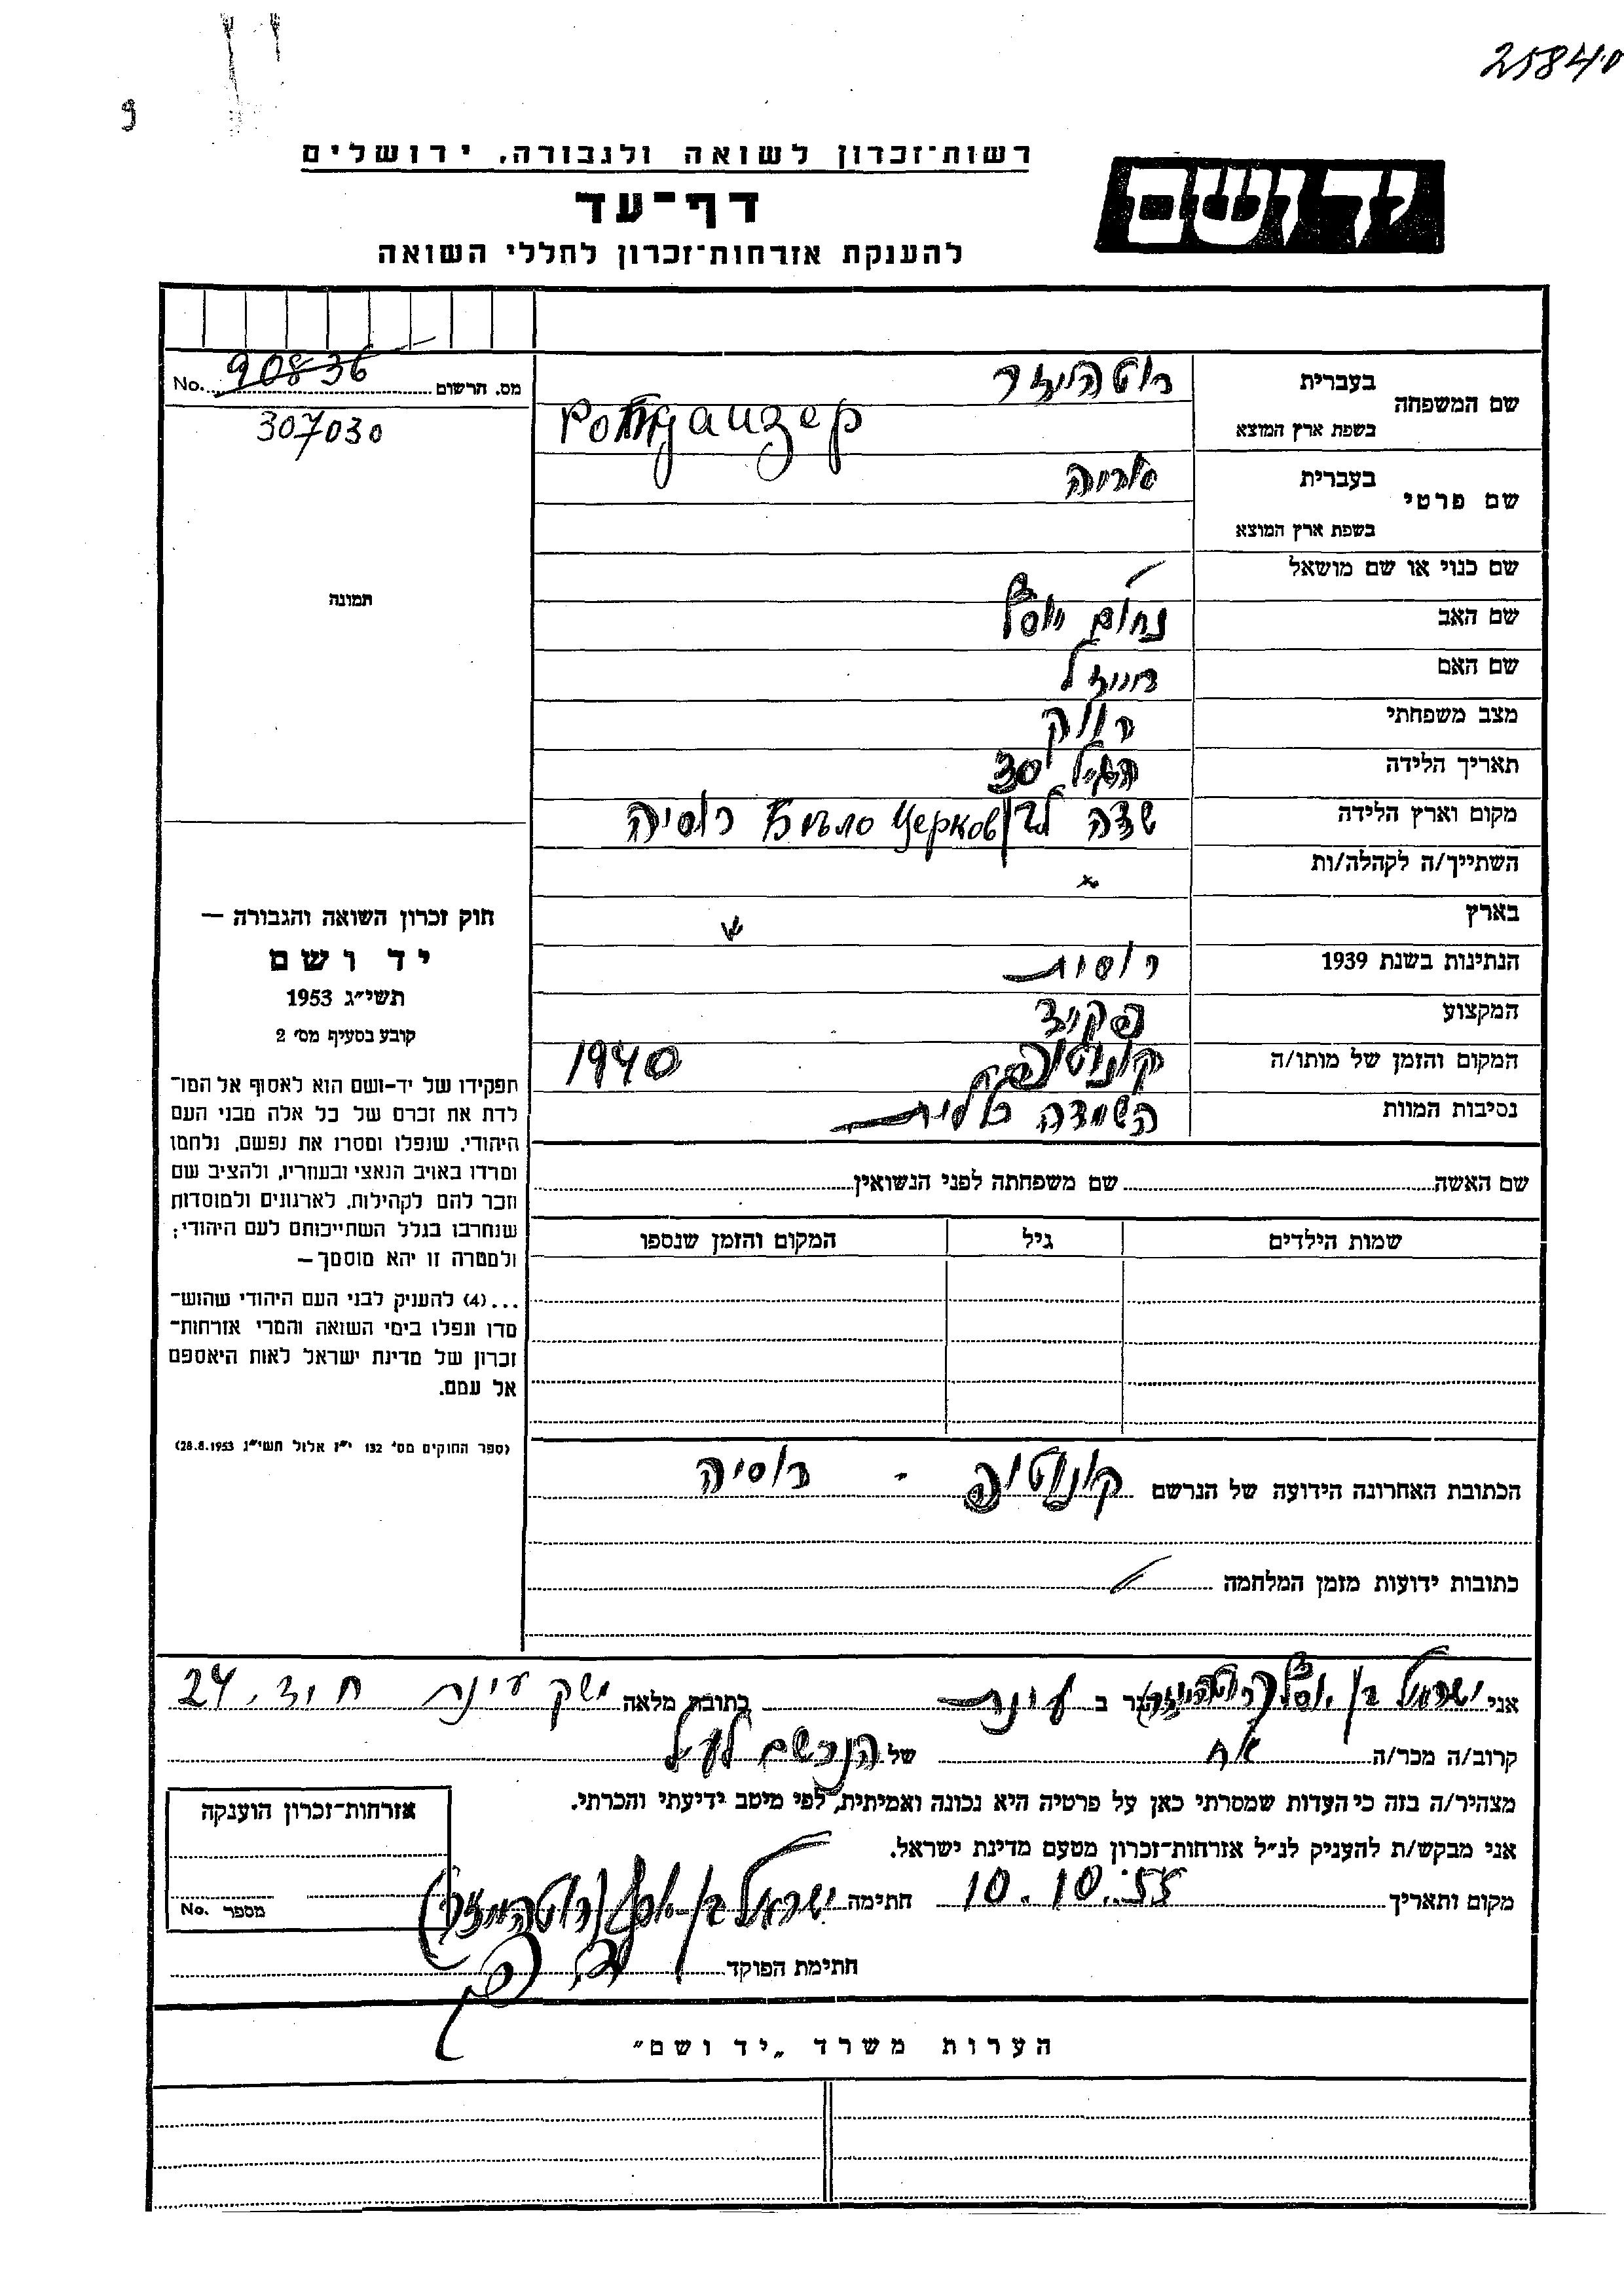 25840
9
רשות־זכרון לשואה ולגבורה, ירושלים
יד ושם
דף־עד
להענקת אזרחות־זכרון לחללי השואה
מס. הרשום 90836 No.
307030
תמונה
שם המשפחה
בעברית רוטהויזר
בשפת ארץ המוצא Ротгаузер
שם פרטי
בעברית אריה
בשפת ארץ המוצא
שם כנוי או שם מושאל
שם האב נחום יוסף
שם האם רייזל
מצב משפחתי רווק
תאריך הלידה הגיל 30
מקום וארץ הלידה שדה לבן Бѣло Церков רוסיה
השתייך/ה לקהלה/ות
בארץ
הנתינות בשנת 1939 רוסית
המקצוע פקיד
המקום והזמן של מותו/ה קונוטופ 1940
נסיבות המוות השמדה כללית
שם האשה שם משפחתה לפני הנשואין
שמות הילדים גיל המקום והזמן שנספו
חוק זכרון השואה והגבורה —
יד ושם
תשי״ג 1953
קובע בסעיף מס׳ 2
תפקידו של יד-ושם הוא לאסוף אל המו־
לדת את זכרם של כל אלה מבני העם
היהודי, שנפלו ומסרו את נפשם, נלחמו
ומרדו באויב הנאצי ובעוזריו, ולהציב שם
וזכר להם לקהילות, לארגונים ולמוסדות
שנחרבו בגלל השתייכותם לעם היהודי;
ולמטרה זו יהא מוסמך—
...(4) להעניק לבני העם היהודי שהוש־
מדו ונפלו בימי השואה והמרי אזרחות־
זכרון של מדינת ישראל לאות היאספם
אל עמם.
(ספר החוקים מס׳ 132 י״ז אלול תשי״ג 28.8.1953)
הכתובת האחרונה הידועה של הנרשם קונוטופ - רוסיה
כתובות ידועות מזמן המלחמה
אני ישראל בן יוסף (רוטהויזר) הגר ב עינת כתובת מלאה משק עינת ח.יד. 24
קרוב/ה מכר/ה אח של הנרשם לעיל
מצהיר/ה בזה כי העדות שמסרתי כאן על פרטיה היא נכונה ואמיתית, לפי מיטב ידיעתי והכרתי.
אני מבקש/ת להעניק לנ״ל אזרחות־זכרון מטעם מדינת ישראל.
מקום ותאריך 10.10.55 חתימה ישראל בן-יוסף (רוטהויזר)
חתימת הפוקד
אזרחות־זכרון הוענקה
מספר No.
הערות משרד „יד ושם״